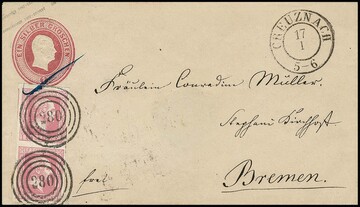 EIN SILBER GROSCHEN
CREUZNACH
17
1
5-6
Fräulein Conradine Müller.
280
Stephani Kirchhof
280
frei
Bremen.